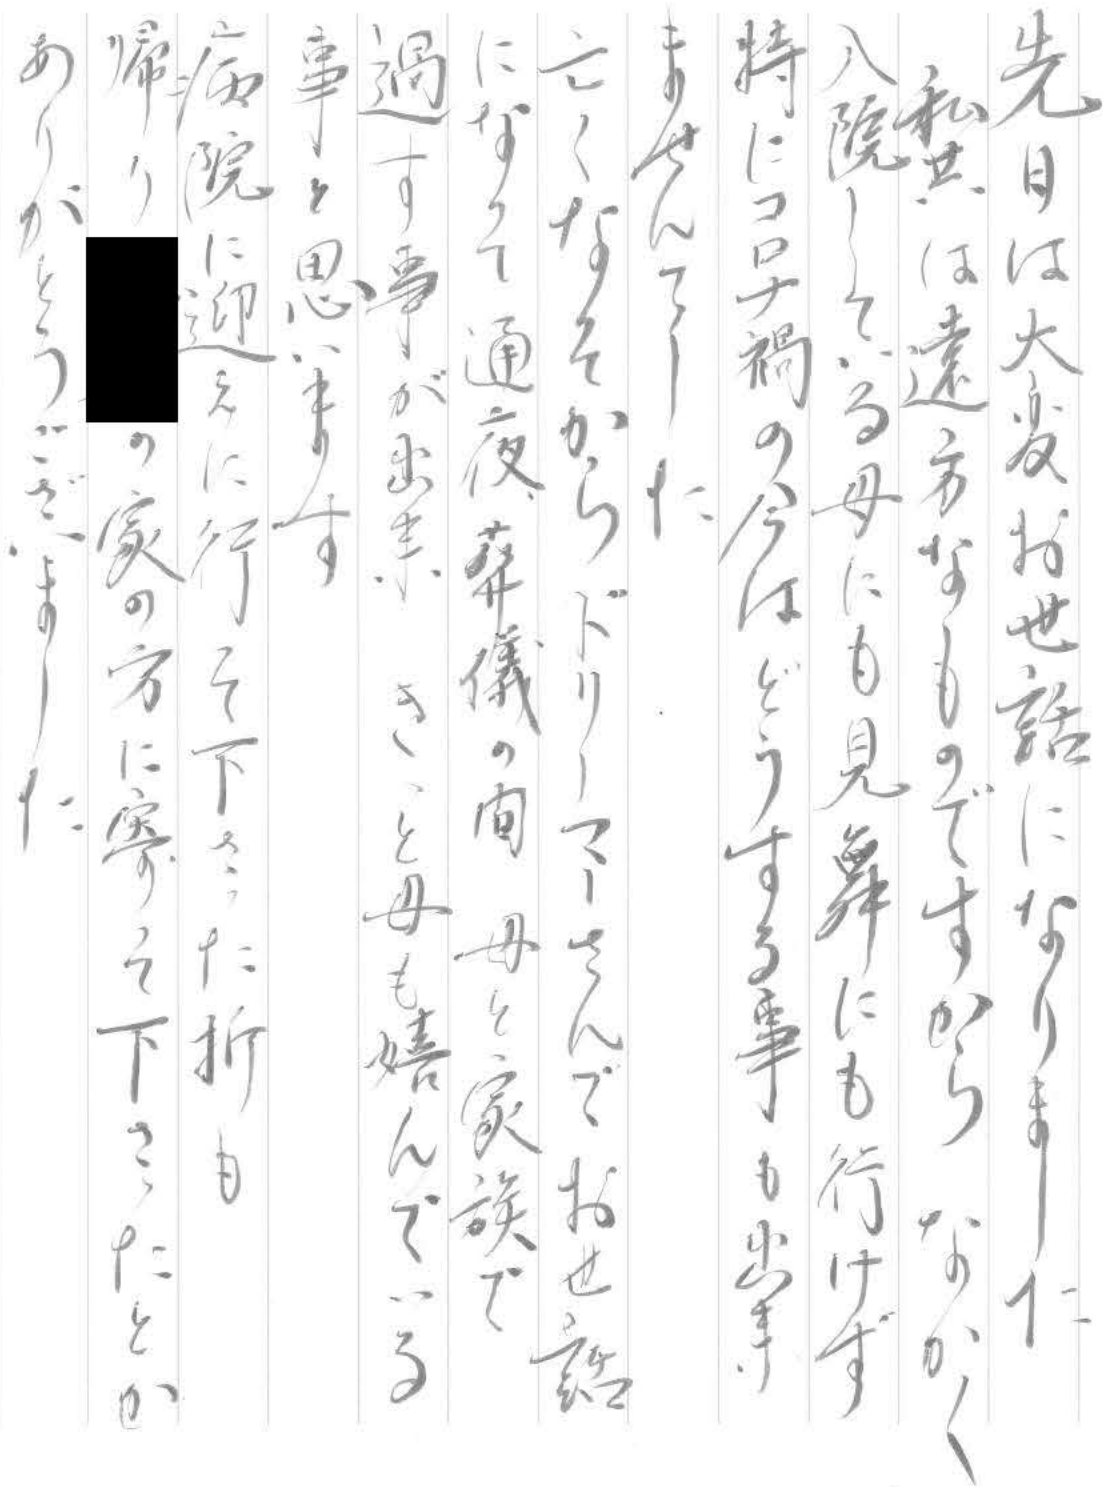 先日は大変お世話になりました
私共は遠方なものですから なかなか
入院している母にも見舞にも行けず
特にコロナ禍の今はどうする事も出来
ませんでした
亡くなってからドリーマーさんでお世話
になって通夜、葬儀の間 母と家族で
過す事が出来 きっと母も嬉んでいる
事と思います
病院に迎えに行って下さった折も
帰り の家の方に寄って下さったとか
ありがとうございました